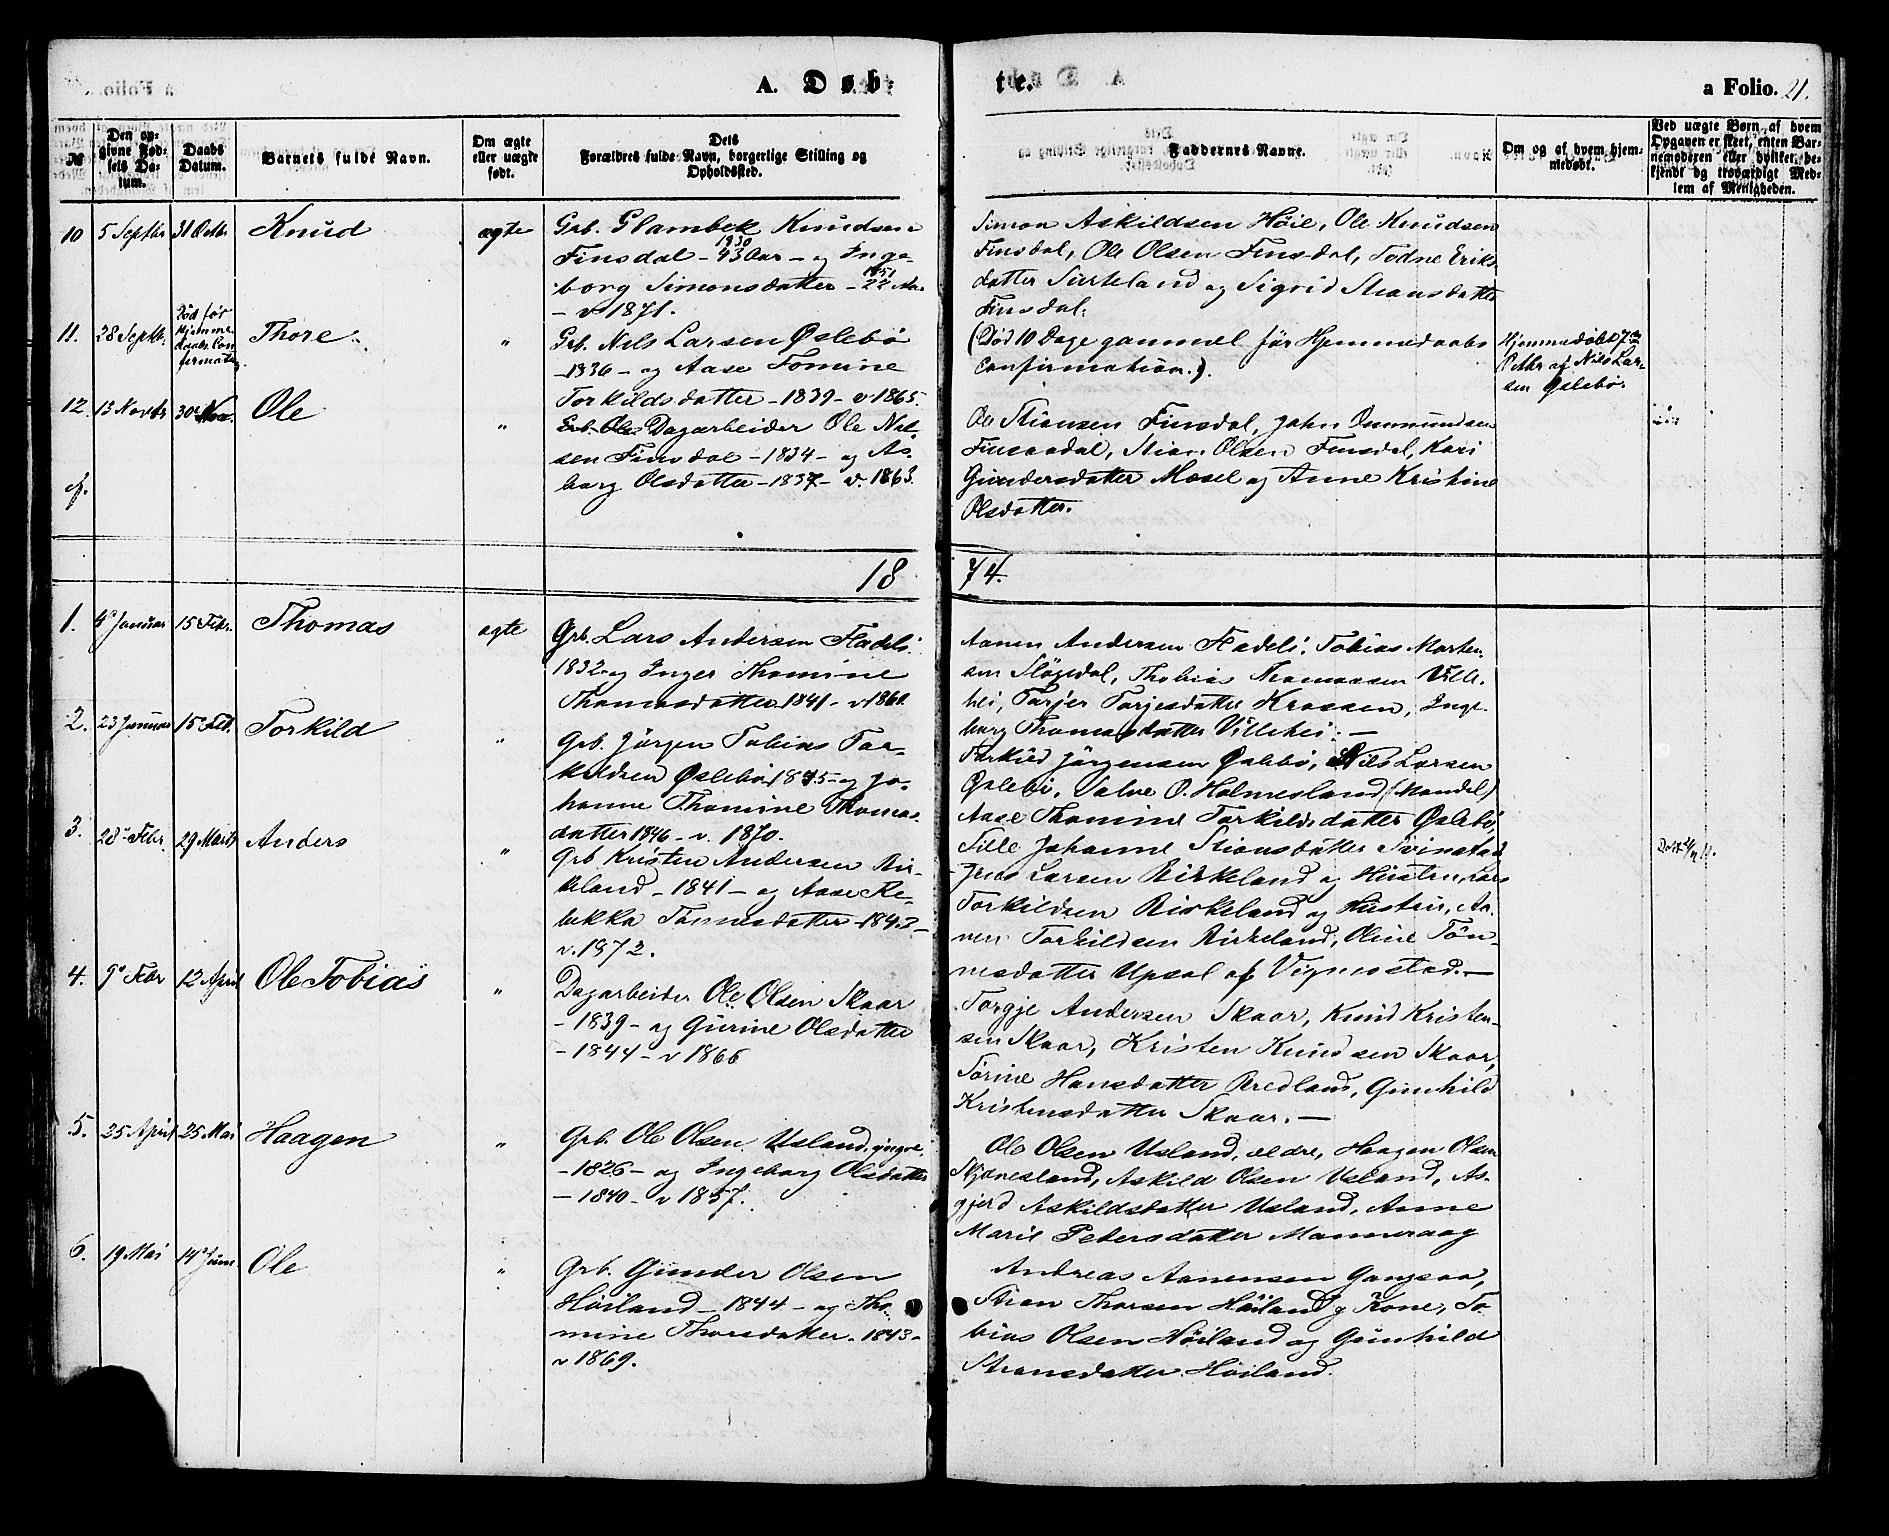 A. Døb-
te.
a Folio. 21.
№
Den op-
givne Fød-
sels Da-
tum.
Daabs
Datum.
Barnets fulde Navn.
Om ægte
eller uægte
født.
Dets
Forældres fulde Navn, borgerlige Stilling og
Opholdssted.
Faddernes Navne.
Om og af hvem hjem-
medøbt.
Ved uægte Børn, af hvem
Opgaven er skeet, enten Bar-
nemoderen eller hvilket be-
kjendt og troværdigt Med-
lem af Menigheden.
10 5 Septbr 31 Octbr Knud ægte
Grb. Knudsen
1830
Finsdal - 43 Aar - og Inge-
1851
borg Simonsdatter - 22 Aar
- v 1871.
Simon Askildsen Høie, Ole Knudsen
Finsdal, Ole Olsen Finsdal, Todne Eriks
datter og Sigrid Stiansdatter
Finsdal.
11. 28 Septbr. Død før
Hjemme
daabs Con
firmation Thore "
Grb. Nils Larsen Øslebø
- 1836 - og Aase Tomine
Torkildsdatter - 1839 - v 1865.
(Død 10 Dage gammel før Hjemmedaabs
Confirmation.)
Hjemmedøbt 7de
Octbr af Nils Lar-
sen Øslebø.
12. 13 Novbr 30 Nov. Ole "
Dagarbeider Ole Nil-
sen Finsdal - 1834 - og As-
borg Olsdatter - 1837 - v. 1863.
Ole Stiansen Finsdal, John Omundsen
Finsdal, Stian Olsen Finsdal, Kari
Gundersdatter Mosel og Anne Kristine
Olsdatter.
18
74.
1. 4 Januar 15 Febr. Thomas ægte
Grb. Lars Andersen
1832 og Inger Thomine
Thomasdatter 1841 - v 1860.
Aanen Andersen Tobias Morten-
sen Thobias Thomassen Ville-
hei, Torjer Torjesdatter Krossen, Inge-
borg Thomasdatter Villehei. -
2. 23 Januar 15 Feb. Torkild "
Grb. Jørgen Tobias Tor-
kildsen Øslebø 1845 - og Jo-
hanne Thomine Thomas-
datter 1846 - v. 1870.
Torkild Jørgensen Øslebø, Nils Larsen
Øslebø, Salve O. Holmesland (Mandal)
Aase Thomine Torkildsdatter Øslebø,
Sille Johanne Stiansdatter Svinstad
3. 28 Febr. 29 Marts Anders "
Grb Kristen Andersen Bir-
keland - 1841 - og Aase Re-
bekka Tønnesdatter - 1842 -
v. 1872.
Jens Larsen Birkeland og Hustru, Lars
Torkildsen Birkeland og Hustru, Aa-
nen Torkildsen Birkeland, Oline Tøn-
nesdatter Upsal af Vigmostad. -
4. 9 Febr 12 April Ole Tobias "
Dagarbeider Ole Olsen Skaar
- 1839 - og Gurine Olsdatter
- 1844 - v 1866
Torgje Andersen Skaar, Knud Kristen-
sen Skaar, Kristen Knudsen Skaar,
Sørine Hansdatter Bredland, Gunhild
Kristensdatter Skaar. -
5. 25 April 25 Mai Haagen "
Grb. Ole Olsen Usland, yngre,
- 1826 - og Ingeborg Olsdatter
- 1840 - v 1857.
Ole Olsen Usland, ældre, Haagen Olsen
Skjønesland, Askild Olsen Usland, As-
gjerd Askildsdatter Usland, Anne
Marie Petersdatter Manneraag
6. 19 Mai 14 Juni Ole "
Grb. Gunder Olsen
Høiland - 1844 - og Tho-
mine Thorsdatter. 1843 -
v 1869.
Andreas Aanensen Gangsaa,
Stian Thorsen Høiland og Kone, To-
bias Olsen Høiland og Gunhild
Stiansdatter Høiland.